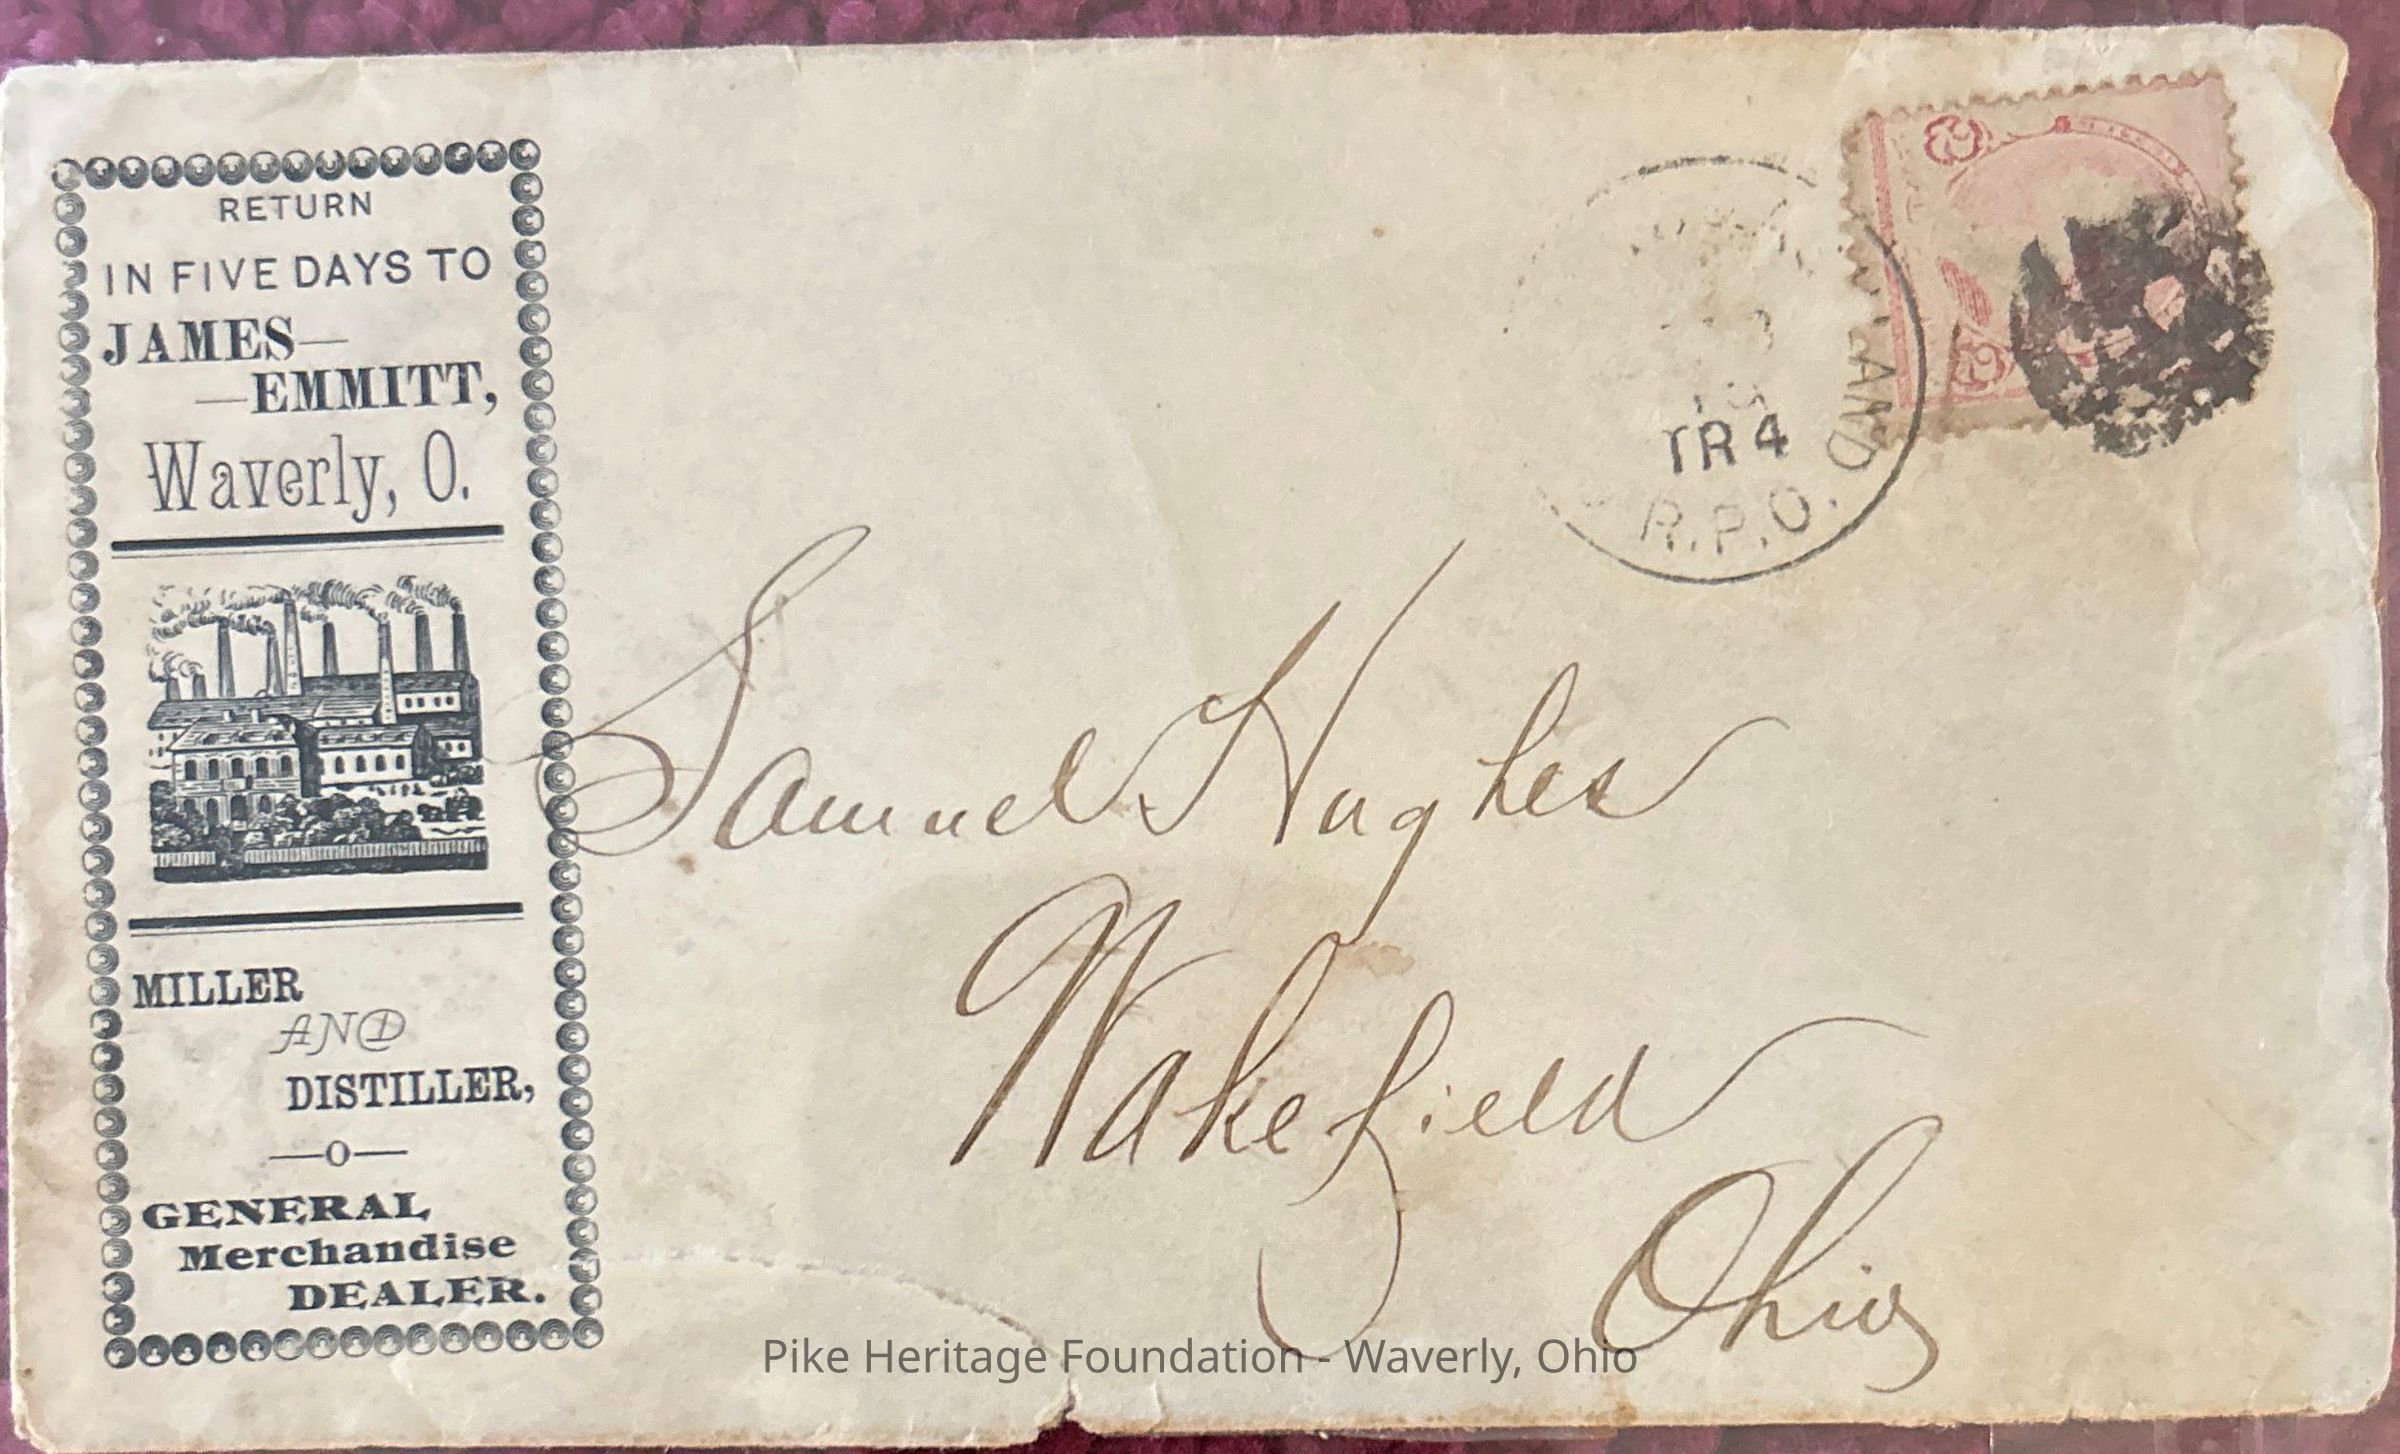 RETURN
IN FIVE DAYS TO
JAMES—
—EMMITT,
Waverly, O.
MILLER
AND
DISTILLER,
—o—
GENERAL
Merchandise
DEALER.
TR 4
R.P.O.
Samuel Hughes
Wakefield
Ohio
Pike Heritage Foundation - Waverly, Ohio